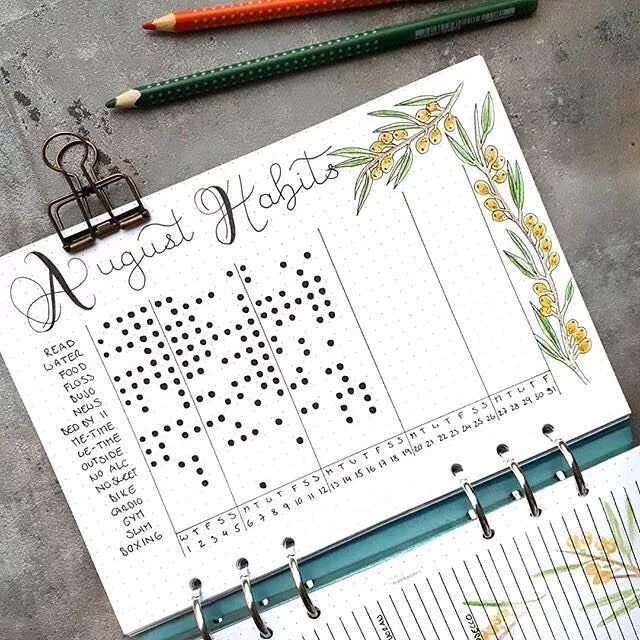 August Habits
READ
WATER
FOOD
FLOSS
BUJO
NEWS
BED BY 11
ME-TIME
WE-TIME
OUTSIDE
NO ALC
NO SWEET
BIKE
CARDIO
GYM
SLIM
BOXING
W T F S S M T W T F S S M T W T F S S M T W T F S S M T W T F
1 2 3 4 5 6 7 8 9 10 11 12 13 14 15 16 17 18 19 20 21 22 23 24 25 26 27 28 29 30 31